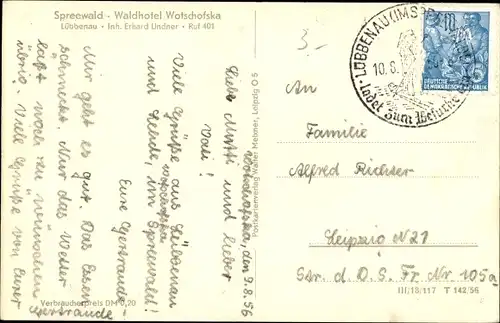 Spreewald - Waldhotel Wotschofska
Lübbenau - Inh. Erhard Lindner - Ruf 401
Wotschofska, den 9.8.56
Liebe Mutti und lieber
Vati!
Viele Grüße aus Lübbenau
und Lehde, im Spreewald!
Wotschofska
Eure Gertraude!
Mir geht es gut. Das Essen
schmeckt. Nur das Wetter
läßt noch zu wünschen
übrig. Viele Grüße von Eurer
Gertraude!
Verbraucherpreis DM 0,20
Postkartenverlag Walter Meißner, Leipzig O 5
3.-
LÜBBENAU
10.8.
ladet zum Besuche
DEUTSCHE
DEMOKRATISCHE REPUBLIK
An
Familie
Alfred Richter
Leipzig N 21
Str. d. D. S. Fr Nr. 105a
III/18/117 T 142/56